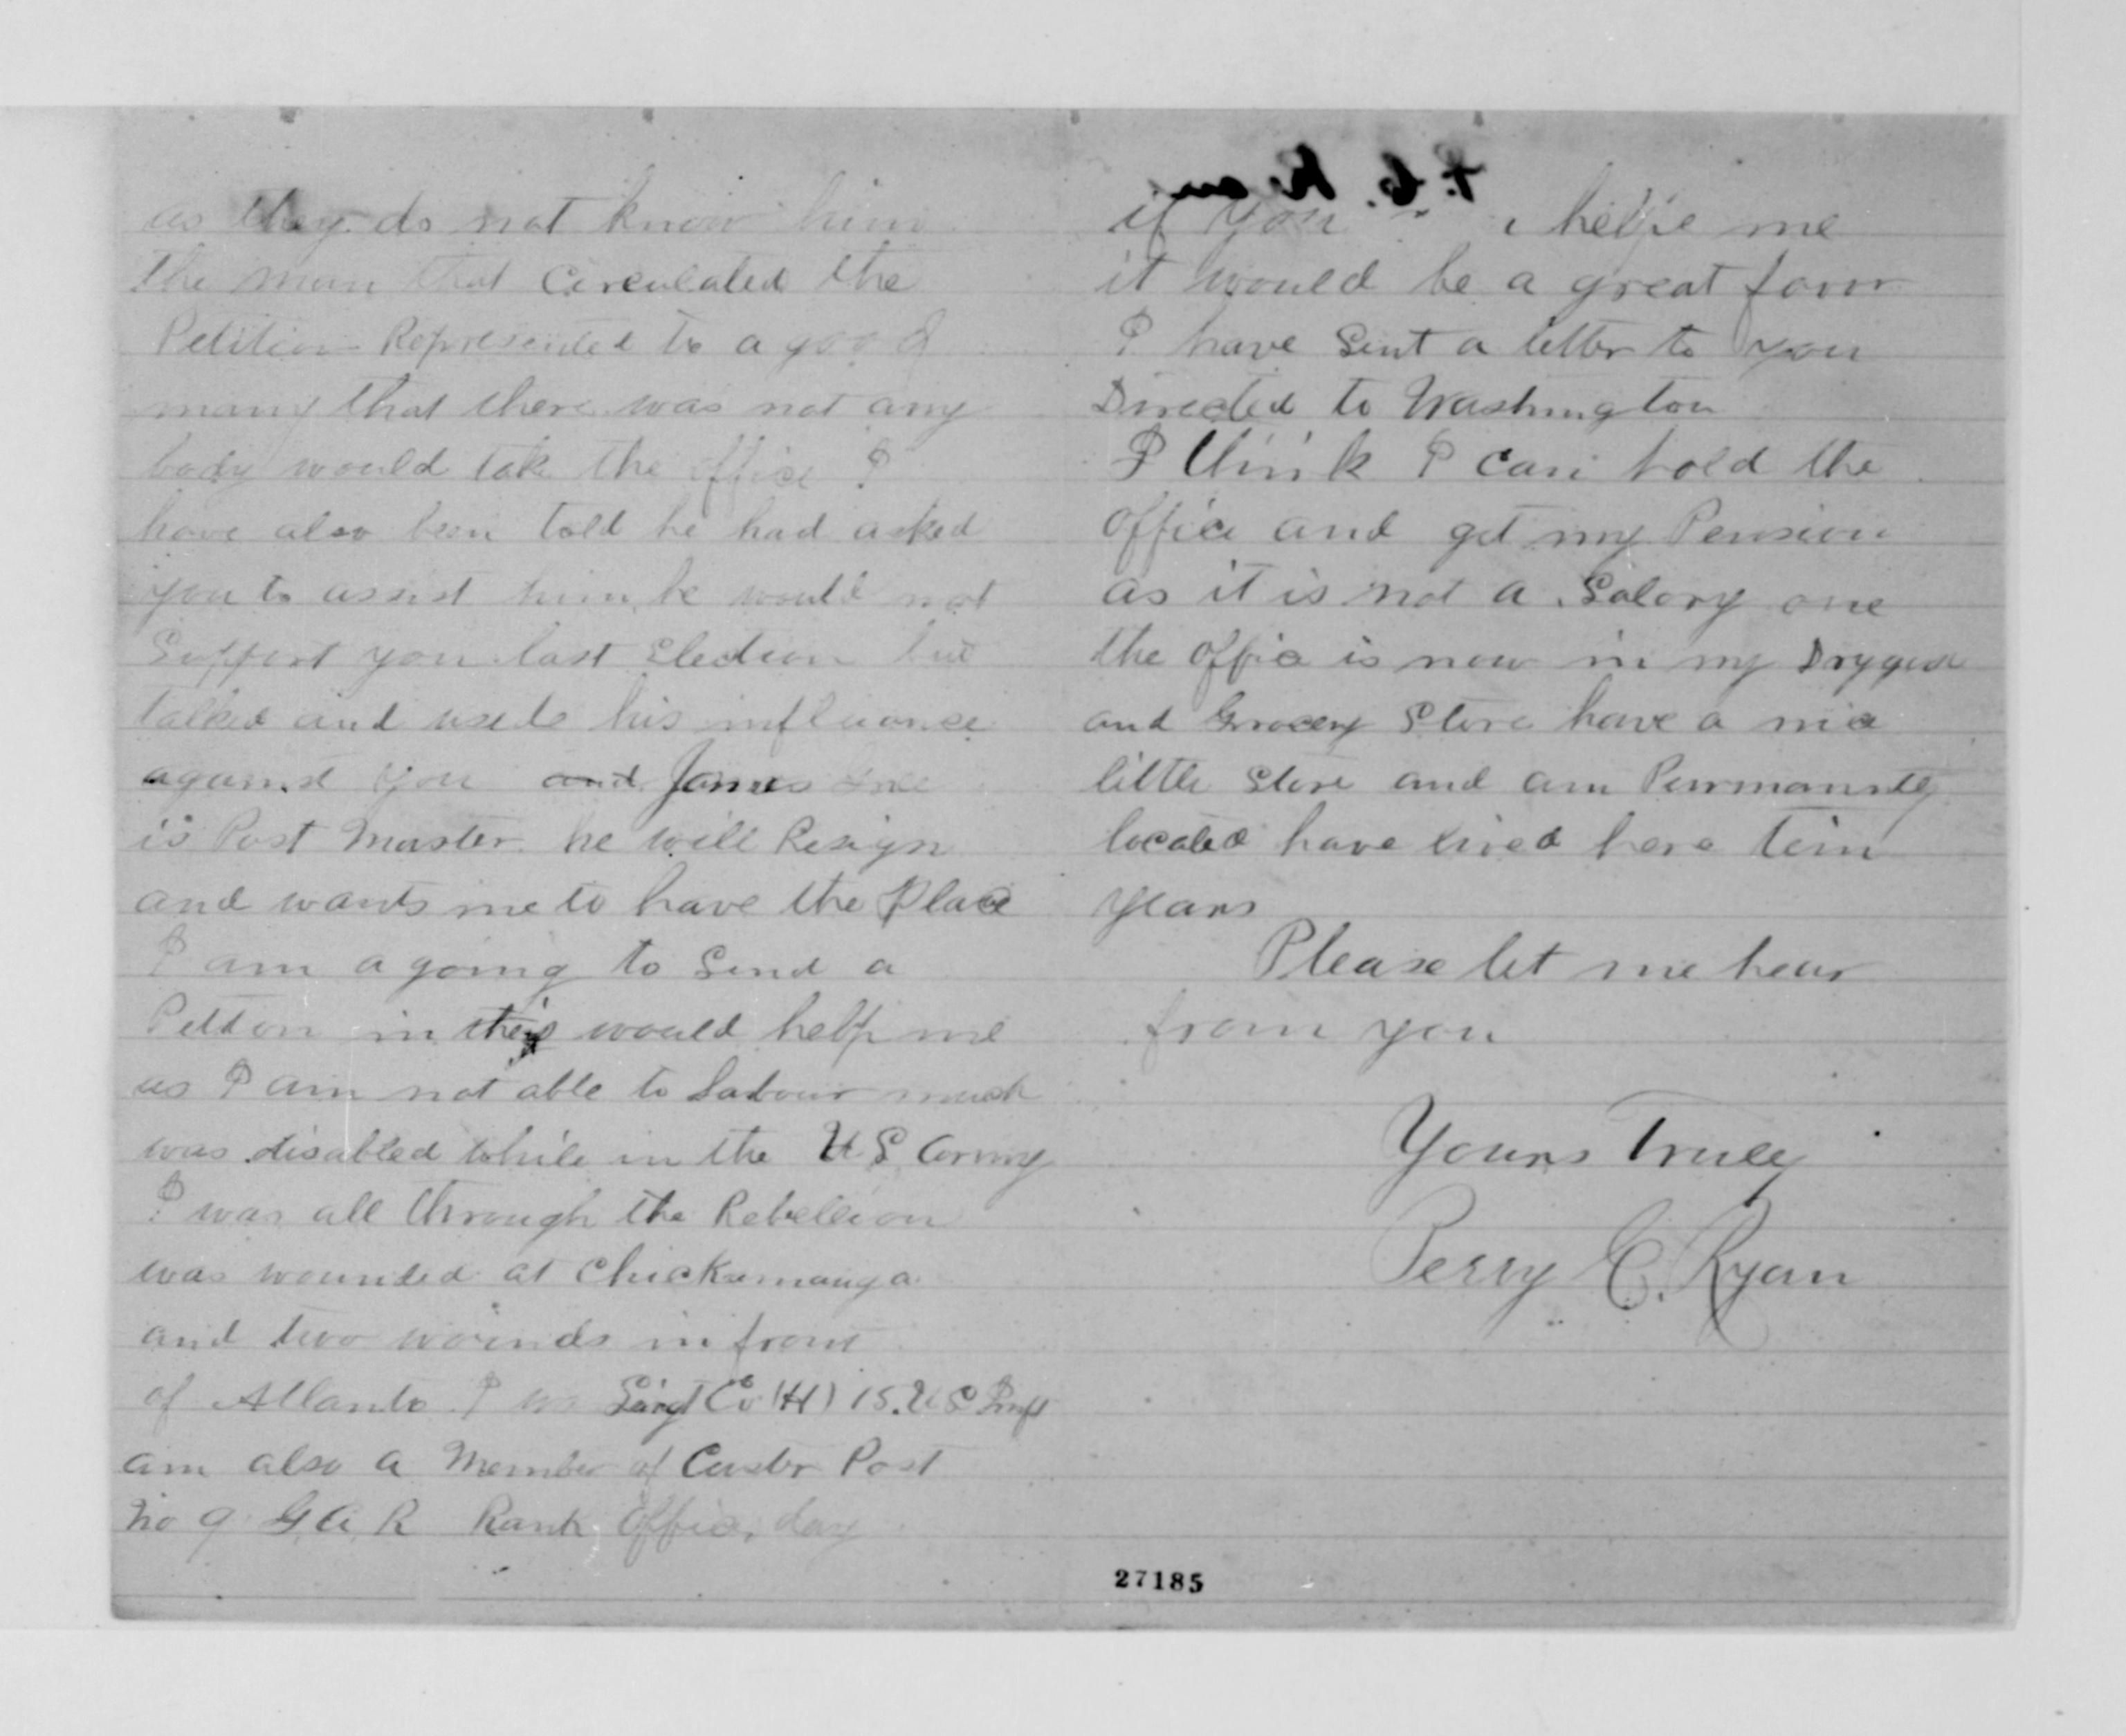 as they do not know him
the man that Circulated the
Petition Represented to a good
many that there was not any
body would tak the office I
have also been told he had asked
you to assist him, he would not
Support you last Election but
talked and used his influance
against you and James
is Post Master he will Resign
and wants me to have the Place
I am a going to Send a
Petition in this would help me
as I am not able to Labour much
was disabled while in the U S Army
I was all through the Rebellion
was wounded at Chickamauga
and two wounds in front
of Atlanta I was Sargt Co (H) 15. U S Inft
am also a Member of Custer Post
No 9 G A R Rank Office, day
if you helpe me
it would be a great favor
I have Sent a letter to you
Directed to Washington
I think I can hold the
office and get my Pension
as it is not a Salory one
the offic is now in my
and Grocery Store have a nice
little Store and am
located have lived here
years
Please let me hear
from you
Yours Truly
Perry C. Ryan
27185